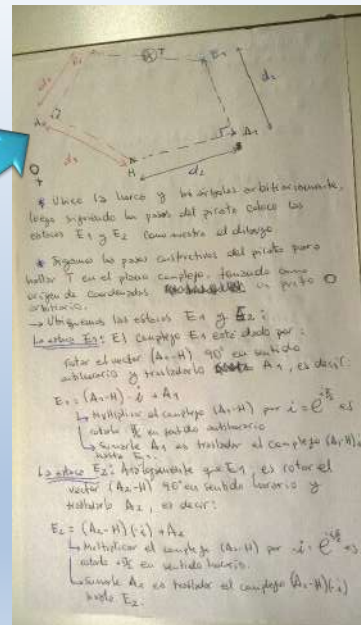 E₂ T E₁
d₁ d₂
A₂ A₁
d₁ H d₂
O
* Ubico la horca y los árboles arbitrariamente,
luego siguiendo los pasos del pirata coloco las
estacas E₁ y E₂ como muestra el dibujo.
* Sigamos los pasos constructivos del pirata para
hallar T en el plano complejo, tomando como
origen de coordenadas un punto O
arbitrario.
→ Ubiquemos las estacas E₁ y E₂:
La estaca E₁: El complejo E₁ está dado por:
rotar el vector (A₁-H) 90° en sentido
antihorario y trasladarlo A₁, es decir:
E₁ = (A₁-H)·i + A₁
↳ Multiplicar el complejo (A₁-H) por i = e^(iπ/2) es
rotarlo π/2 en sentido antihorario
↳ Sumarle A₁ es trasladar el complejo (A₁-H)i
hasta E₁.
La estaca E₂: Análogamente que E₁, es rotar el
vector (A₂-H) 90° en sentido horario y
trasladarlo A₂, es decir:
E₂ = (A₂-H)(-i) + A₂
↳ Multiplicar el complejo (A₂-H) por -i = es
rotarlo en sentido horario.
↳ Sumarle A₂ es trasladar el complejo (A₂-H)(-i)
hasta E₂.